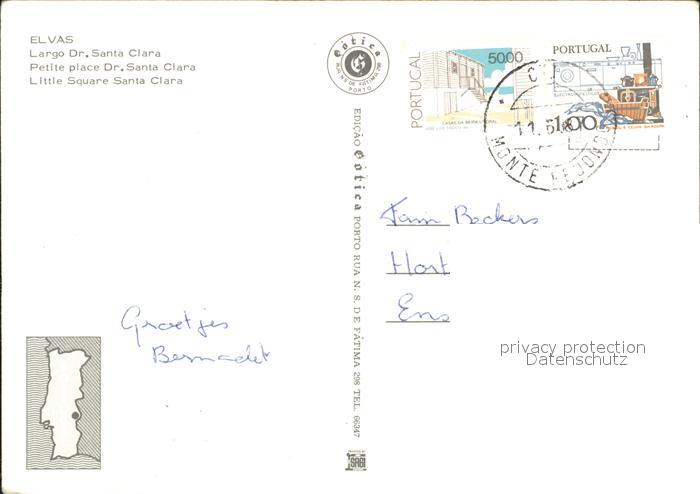 ELVAS
Largo Dr. Santa Clara
Petite place Dr. Santa Clara
Little Square Santa Clara
Gótica
RUA N. S. DE FÁTIMA 298
PORTO
EDIÇÃO Gótica PORTO RUA N. S. DE FÁTIMA 298 TEL. 66347
PORTUGAL
50.00
CASAS DA BEIRA LITORAL
PORTUGAL
1.00
11. 5
MONTE REDONDO
Fam Beckers
Horst
Ens
Groetjes
Bernadet
privacy protection
Datenschutz